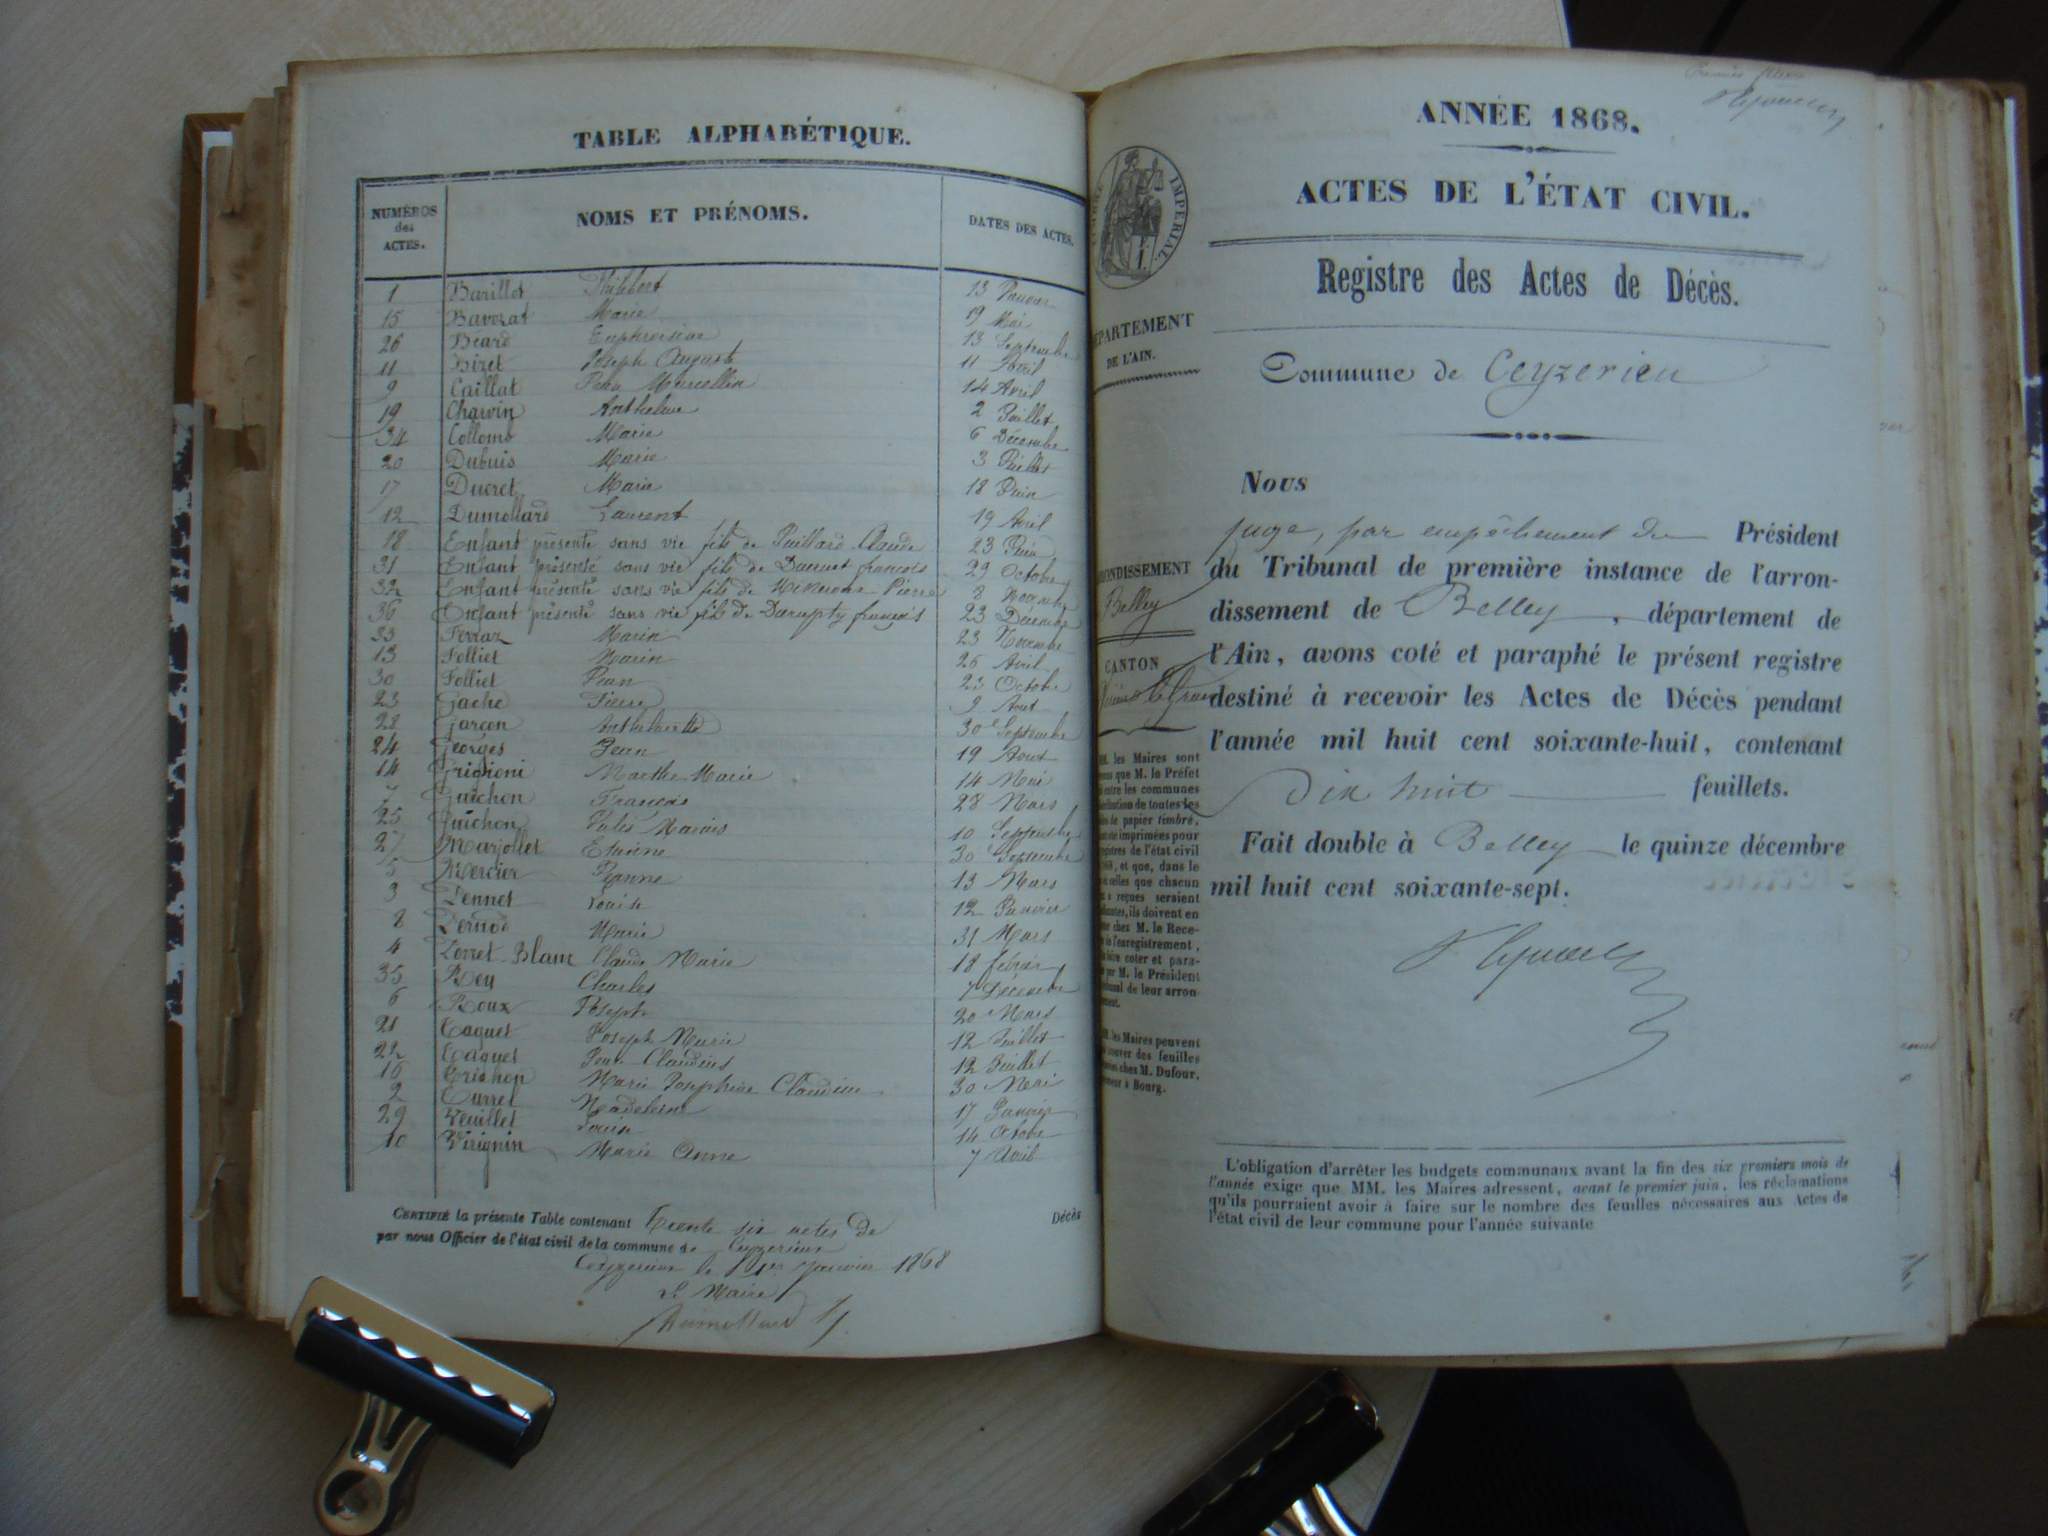 TABLE ALPHABÉTIQUE.
NUMÉROS des ACTES. NOMS ET PRÉNOMS. DATES DES ACTES.
1 Barillot Philibert 13 Janvier
15 Bavozat Marie 19 Mai
26 Béard Euphrosine 13 Septembre
11 Bizet Joseph Auguste 11 Avril
9 Caillat Jean Marcellin 14 Avril
19 Charvin Anthelme 2 Juillet
34 Collomb Marie 6 Décembre
20 Dubuis Marie 3 Juillet
17 Ducret Marie 18 Juin
12 Dumollard Laurent 19 Avril
18 Enfant présenté sans vie fils de Juillard Claude 23 Juin
31 Enfant présenté sans vie fils de françois 29 Octobre
32 Enfant présenté sans vie fils de Pierre 8 Novembre
36 Enfant présenté sans vie fils de françois 23 Décembre
33 Ferraz Marin 23 Novembre
13 Folliet Marin 26 Avril
30 Folliet Jean 23 Octobre
23 Gache Pierre 9 Aout
28 Garçon 30 Septembre
24 Georges Jean 19 Aout
14 Grigioni Marthe Marie 14 Mai
7 Guichon François 28 Mars
25 Guichon Jules Marius 10 Septembre
27 Marjollet Etienne 30 Septembre
5 Mercier Jeanne 13 Mars
3 Pennet Louise 12 Janvier
8 Pernod Marie 31 Mars
4 Perret-Blanc Claude Marie 18 février
35 Rey Charles 7 Décembre
6 Roux Joseph 20 Mars
21 Taquet Joseph Marie 12 Juillet
22 Taquet Jean Claudius 12 Juillet
16 Trichon Marie Joséphine Claudine 30 Mai
2 Turrel Madeleine 17 Janvier
29 Veuillet Louise 14 Octobre
10 Virignin Marie Anne 7 Avril
CERTIFIÉ la présente Table contenant Trente six actes de Décès
par nous Officier de l'état civil de la commune de Ceyzerieu
Ceyzerieu le 1er Janvier 1868
Le Maire
Dumollard
ANNÉE 1868.
ACTES DE L'ÉTAT CIVIL.
TIMBRE IMPERIAL
Registre des Actes de Décès.
DÉPARTEMENT
DE L'AIN.
Commune de Ceyzerieu
Nous
juge, par empêchement du Président
du Tribunal de première instance de l'arron-
dissement de Belley, département de
l'Ain, avons coté et paraphé le présent registre
destiné à recevoir les Actes de Décès pendant
l'année mil huit cent soixante-huit, contenant
dix huit feuillets.
Fait double à Belley le quinze décembre
mil huit cent soixante-sept.
ARRONDISSEMENT
Belley
CANTON
MM. les Maires sont
que M. le Préfet
entre les communes
de toutes les
de papier timbré,
imprimées pour
registres de l'état civil
et que, dans le
celles que chacun
reçues seraient
ils doivent en
chez M. le Rece-
de l'enregistrement,
faire coter et para-
par M. le Président
tribunal de leur arron-
les Maires peuvent
trouver des feuilles
chez M. Dufour,
à Bourg.
L'obligation d'arrêter les budgets communaux avant la fin des six premiers mois de
l'année exige que MM. les Maires adressent, avant le premier juin, les réclamations
qu'ils pourraient avoir à faire sur le nombre des feuilles nécessaires aux Actes de
l'état civil de leur commune pour l'année suivante